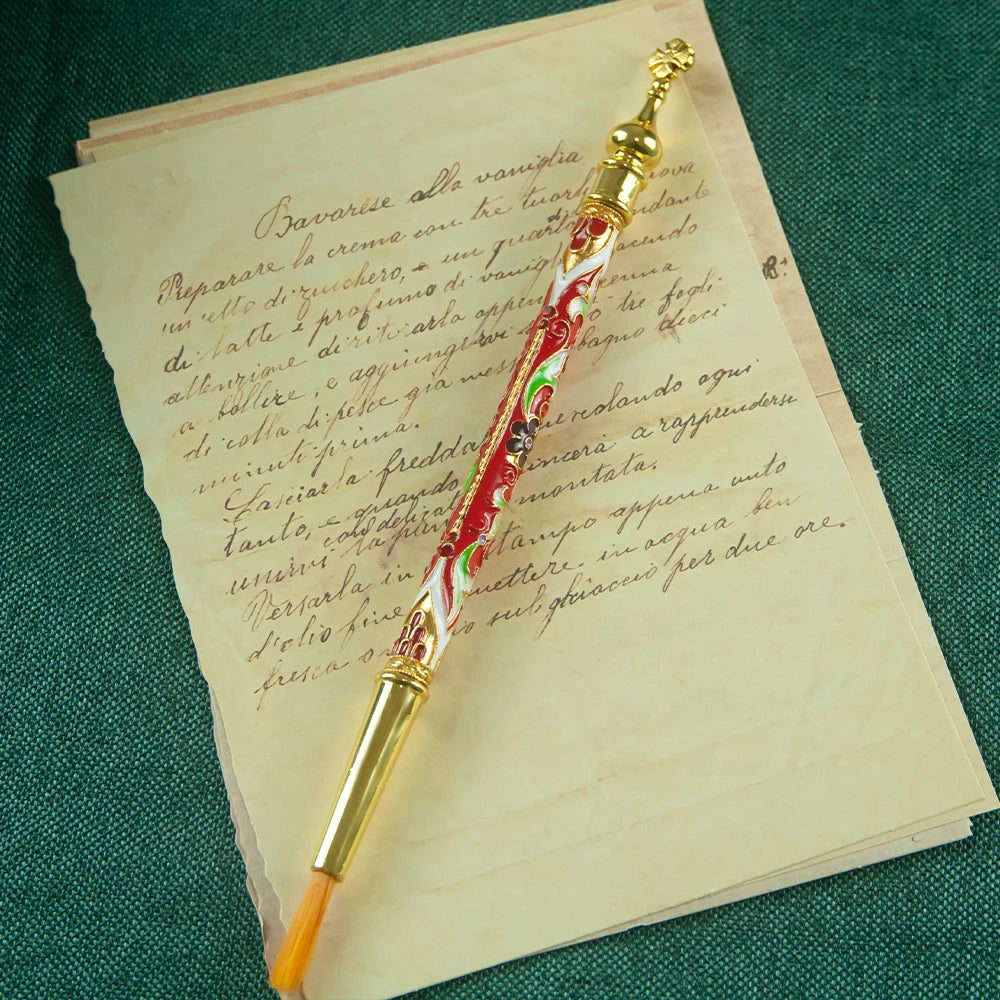 Bavarese alla vaniglia
Preparare la crema con tre tuorli uova
un etto di zucchero, e un quarto
di latte e profumo di vaniglia facendo
attenzione di ritirarla appena accenna
a bollire, e aggiungervi tre fogli
di colla di pesce già messi bagno dieci
minuti prima.
Lasciarla freddar mescolando ogni
tanto, e quando comincerà a rapprendersi
unirvi con delicat la pan montata.
Versarla in stampo appena unto
d'olio fine mettere in acqua ben
fresca o sul ghiaccio per due ore.